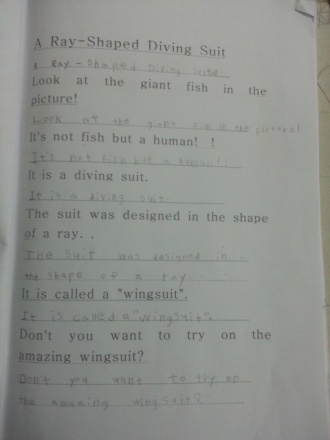 A Ray-Shaped Diving Suit
A Ray-Shaped Diving Suit
Look at the giant fish in the
picture!
Look at the giant fish in the picture!
It's not fish but a human! !
It's not fish but a human!!
It is a diving suit.
It is a diving suit.
The suit was designed in the shape
of a ray. .
The suit was designed in
the shape of a ray.
It is called a "wingsuit".
It is called a "wingsuit".
Don't you want to try on the
amazing wingsuit?
Don't you want to try on
the amazing wingsuit?